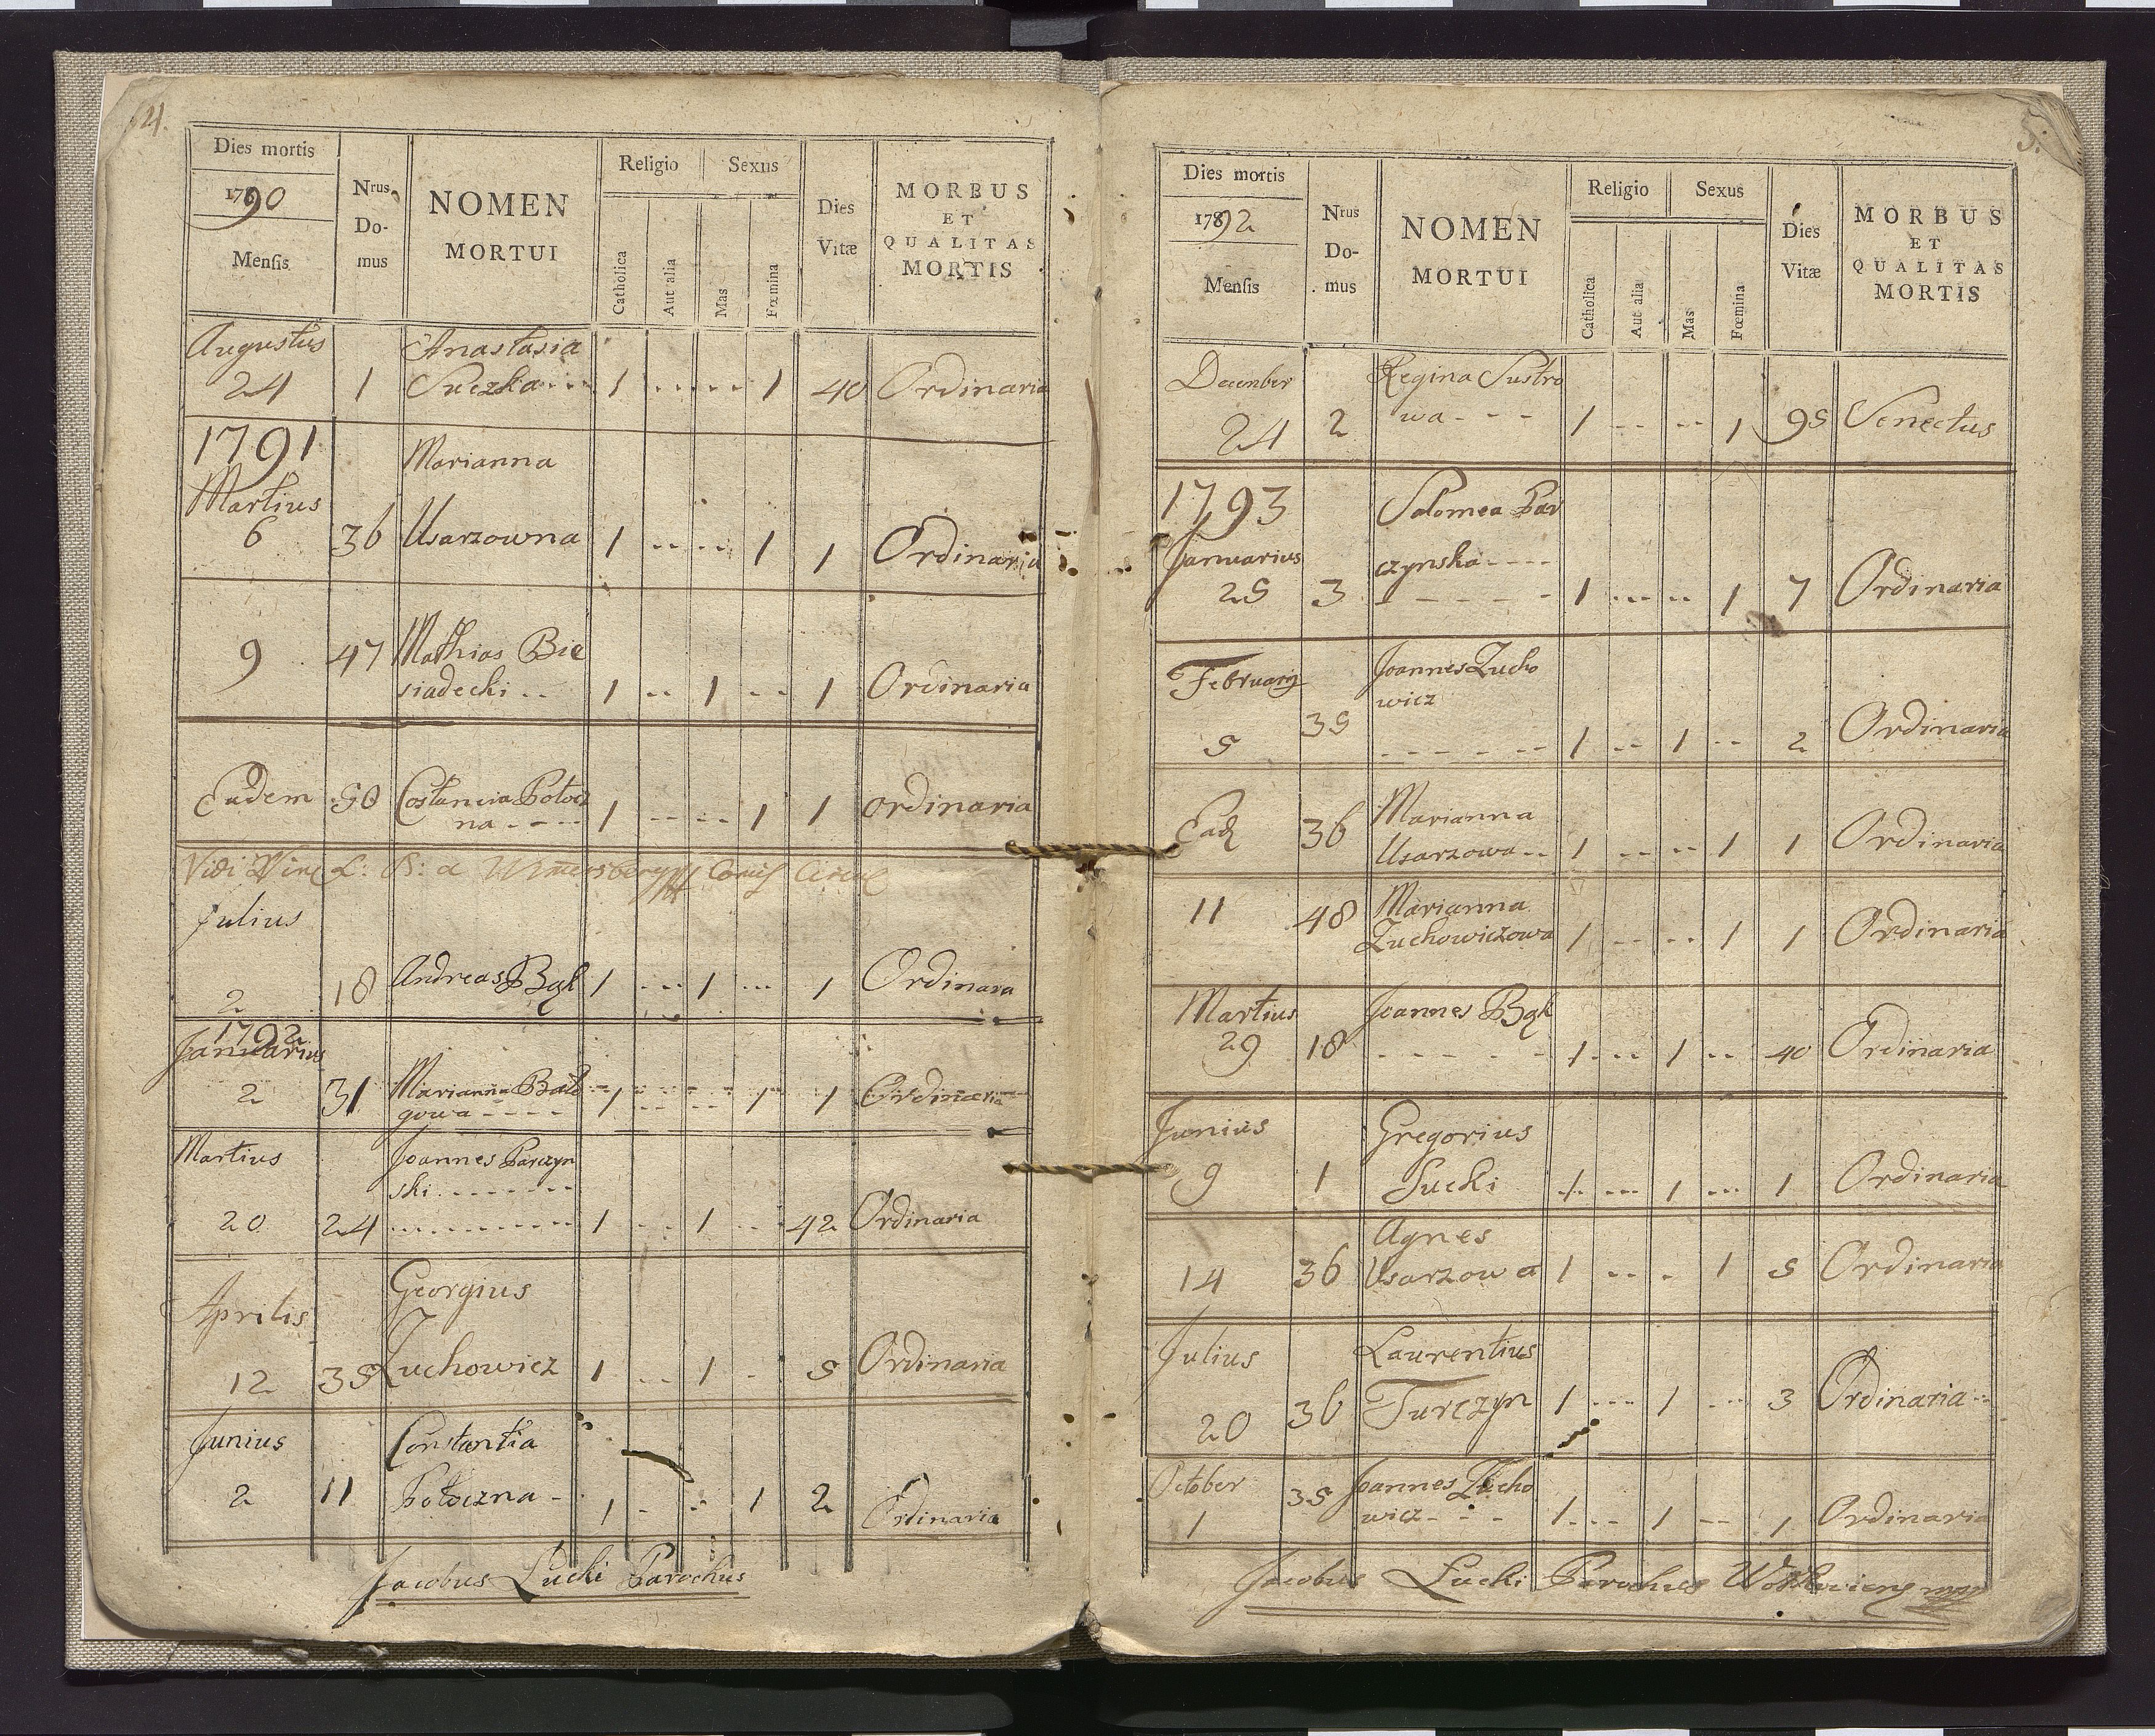 4.
Dies mortis
1790
Mensis
Nrus
Do-
mus
NOMEN
MORTUI
Religio
Sexus
Catholica
Aut alia
Mas
Fœmina
Dies
Vitæ
MORBUS
ET
QUALITAS
MORTIS
Augustus Anastasia
24 1 Suczka 1 1 40 Ordinaria
1791 Marianna
Martius
6 36 Usarzowna 1 1 1 Ordinaria
9 47 Mathias Bie
siadecki 1 1 1 Ordinaria
Eadem 50 Costancia Potocz
na 1 1 1 ordinaria
Vidi
Julius
2 18 Andreas Bąk 1 1 1 Ordinara
1792
Januarius
2 31 Marianna
gowa 1 1 1 Ordinaria
Martius Joannes Parczyn
ski
20 24 1 1 42 Ordinaria
Georgius
Aprilis
12 35 Zuchowicz 1 1 5 Ordinaria
Junius Constantia
2 11 Potoczna 1 1 2 Ordinaria
Jacobus Łucki Parochus
5.
Dies mortis
1792
Mensis
Nrus
Do-
mus
NOMEN
MORTUI
Religio
Sexus
Catholica
Aut alia
Mas
Fœmina
Dies
Vitæ
MORBUS
ET
QUALITAS
MORTIS
December Regina Sustro
24 2 wa 1 1 95 Senectus
1793 Salomea Par
Januarius czynska
25 3 1 1 7 Ordinaria
February Joannes Zucho
wicz
5 35 1 1 2 Ordinaria
Ead 36 Marianna
Usarzowa 1 1 1 Ordinaria
11 48 Marianna
Zuchowiczowa 1 1 1 Ordinaria
Martius Joannes Bąk
29 18 1 1 40 Ordinaria
Junius Gregorius
9 1 Sucki 1 1 1 Ordinaria
Agnes
14 36 Usarzowa 1 1 5 Ordinaria
Julius Laurentius
20 36 Turczyn 1 1 3 Ordinaria
October Joannes Zucho
1 35 wicz 1 1 1 Ordinaria
Jacobus Łucki Parochus